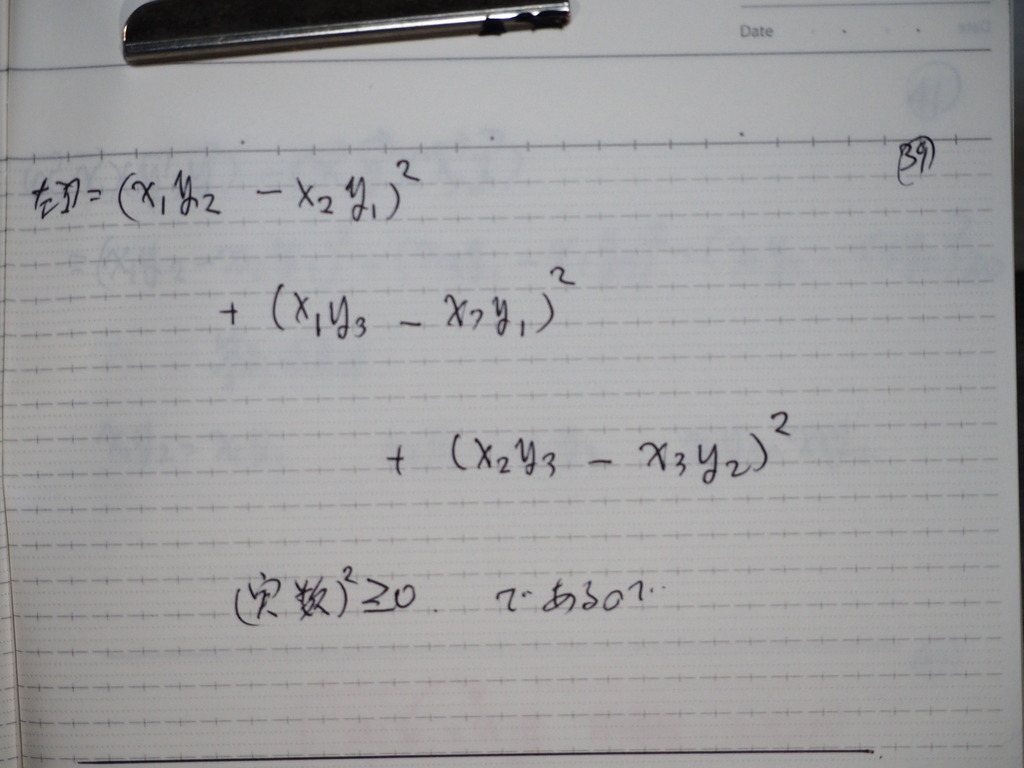 Date
(39)
左辺 = (x₁y₂ − x₂y₁)²
+ (x₁y₃ − x₃y₁)²
+ (x₂y₃ − x₃y₂)²
(実数)² ≧0. であるので